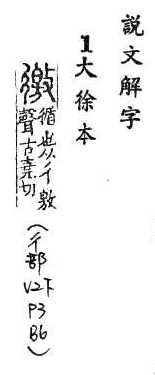 說文解字
1大徐本
徼循也从彳敫
聲古堯切
（彳部
V2下
P3
B6）